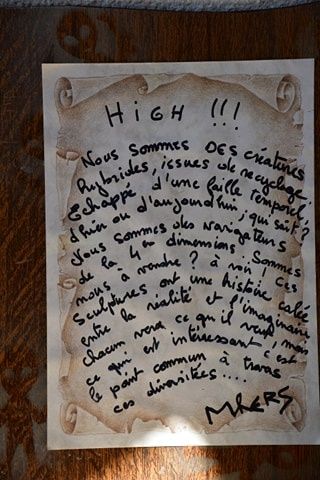 HiGH !!!
Nous sommes DES créatures
hybrides, issues de recyclage.
Echappé d'une faille temporel,
d'hier ou d'aujourd'hui, qui sait ?
Nous sommes des navigateurs
de la 4e dimension. Sommes
nous à vendre ? à voir ! Ces
sculptures ont une histoire calée
entre la réalité et l'imaginaire
chacun verra ce qu'il veut, mais
ce qui est intéressant c'est
le point commun à travers
ces diversitées....